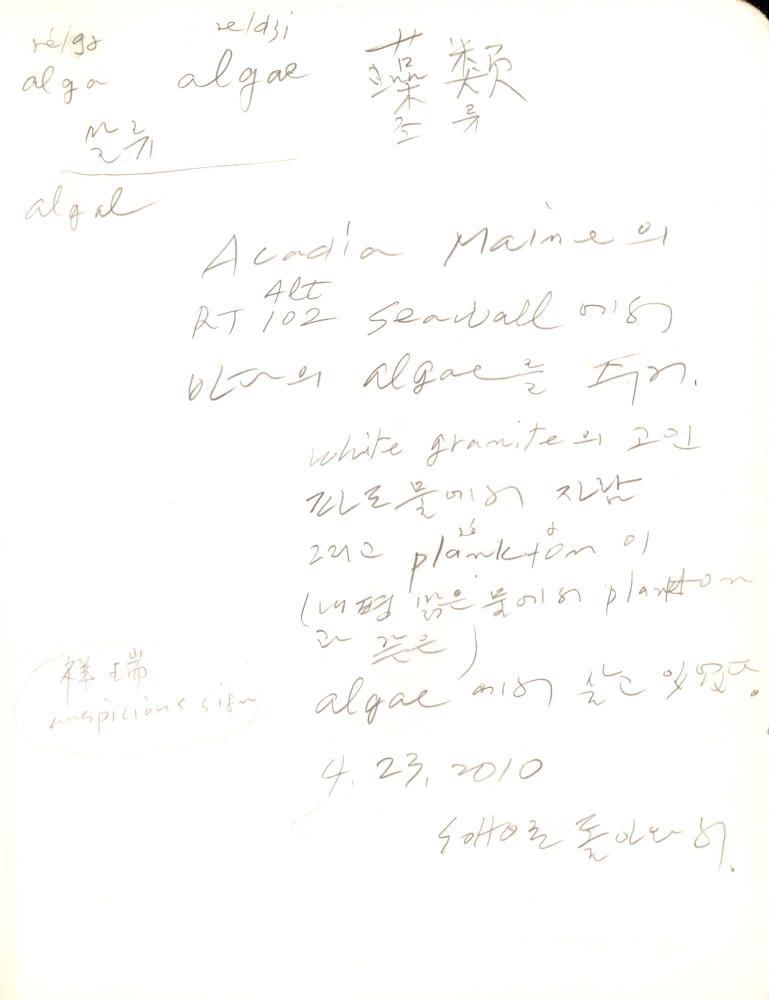 ǽ/gə æ/dʒi
alga algae 藻類
조 류
algal
Acadia Maine의
Alt
RT 102 Seawall 에서
바다의 algae를
white granite의 고인
파도물에서 자람
그리고 plankton 이
(내평 맑은 물에서 plankton
과 같은)
algae 에서 살고 있었다.
祥瑞
auspicious sign
4. 23, 2010
돌아와서.